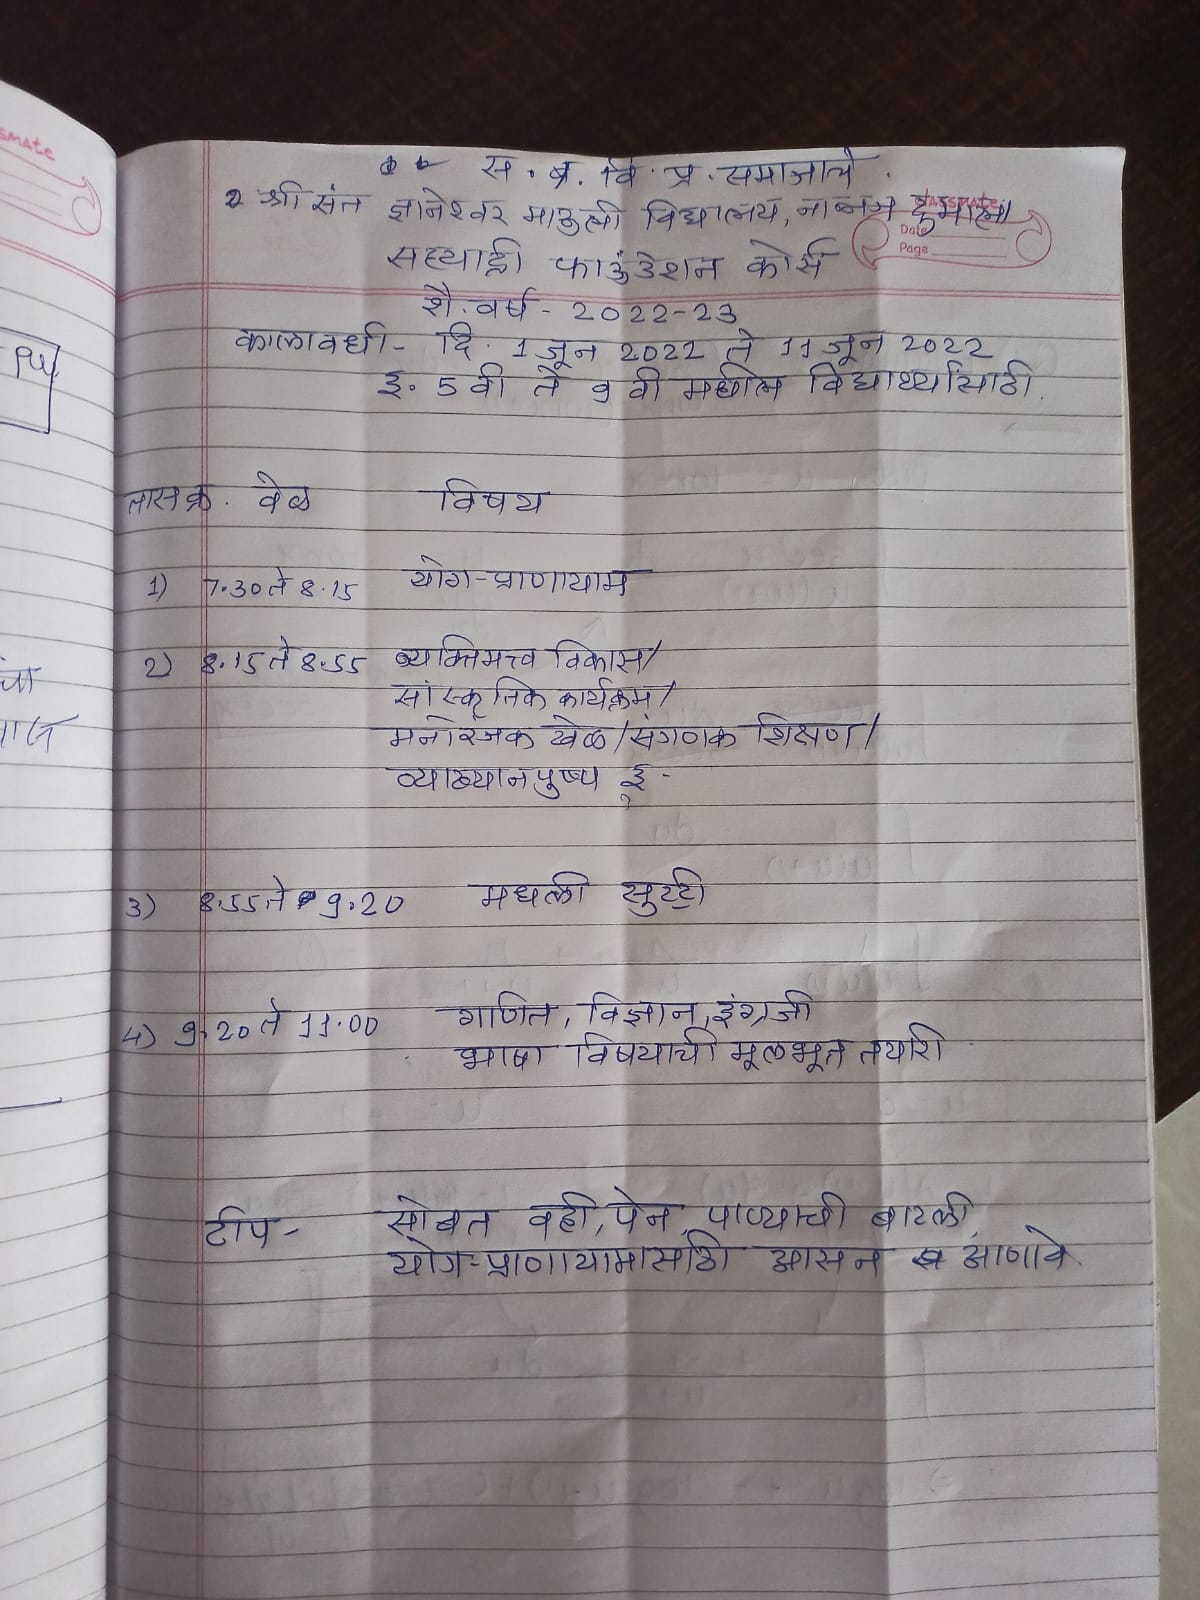 स. ब्र. वि. प्र. समाजाचे.
श्री संत ज्ञानेश्वर माऊली विद्यालय,
सह्याद्री फाउंडेशन कोर्स
शै. वर्ष - 2022-23
कालावधी - दि. 1 जून 2022 ते 11 जून 2022
इ. 5 वी ते 9 वी मधील विद्यार्थ्यांसाठी.
classmate
Date
Page
तास क्र. वेळ विषय
1) 7.30 ते 8.15 योग-प्राणायाम
2) 8.15 ते 8.55 व्यक्तिमत्त्व विकास/
सांस्कृतिक कार्यक्रम/
मनोरंजक खेळ/संगणक शिक्षण/
व्याख्यानपुष्प इ.
3) 8.55 ते 9.20 मधली सुट्टी
4) 9.20 ते 11.00 गणित, विज्ञान, इंग्रजी
भाषा विषयाची मूलभूत तयारी
टीप - सोबत वही, पेन, पाण्याची बाटली,
योग-प्राणायामासाठी आसन आणावे.